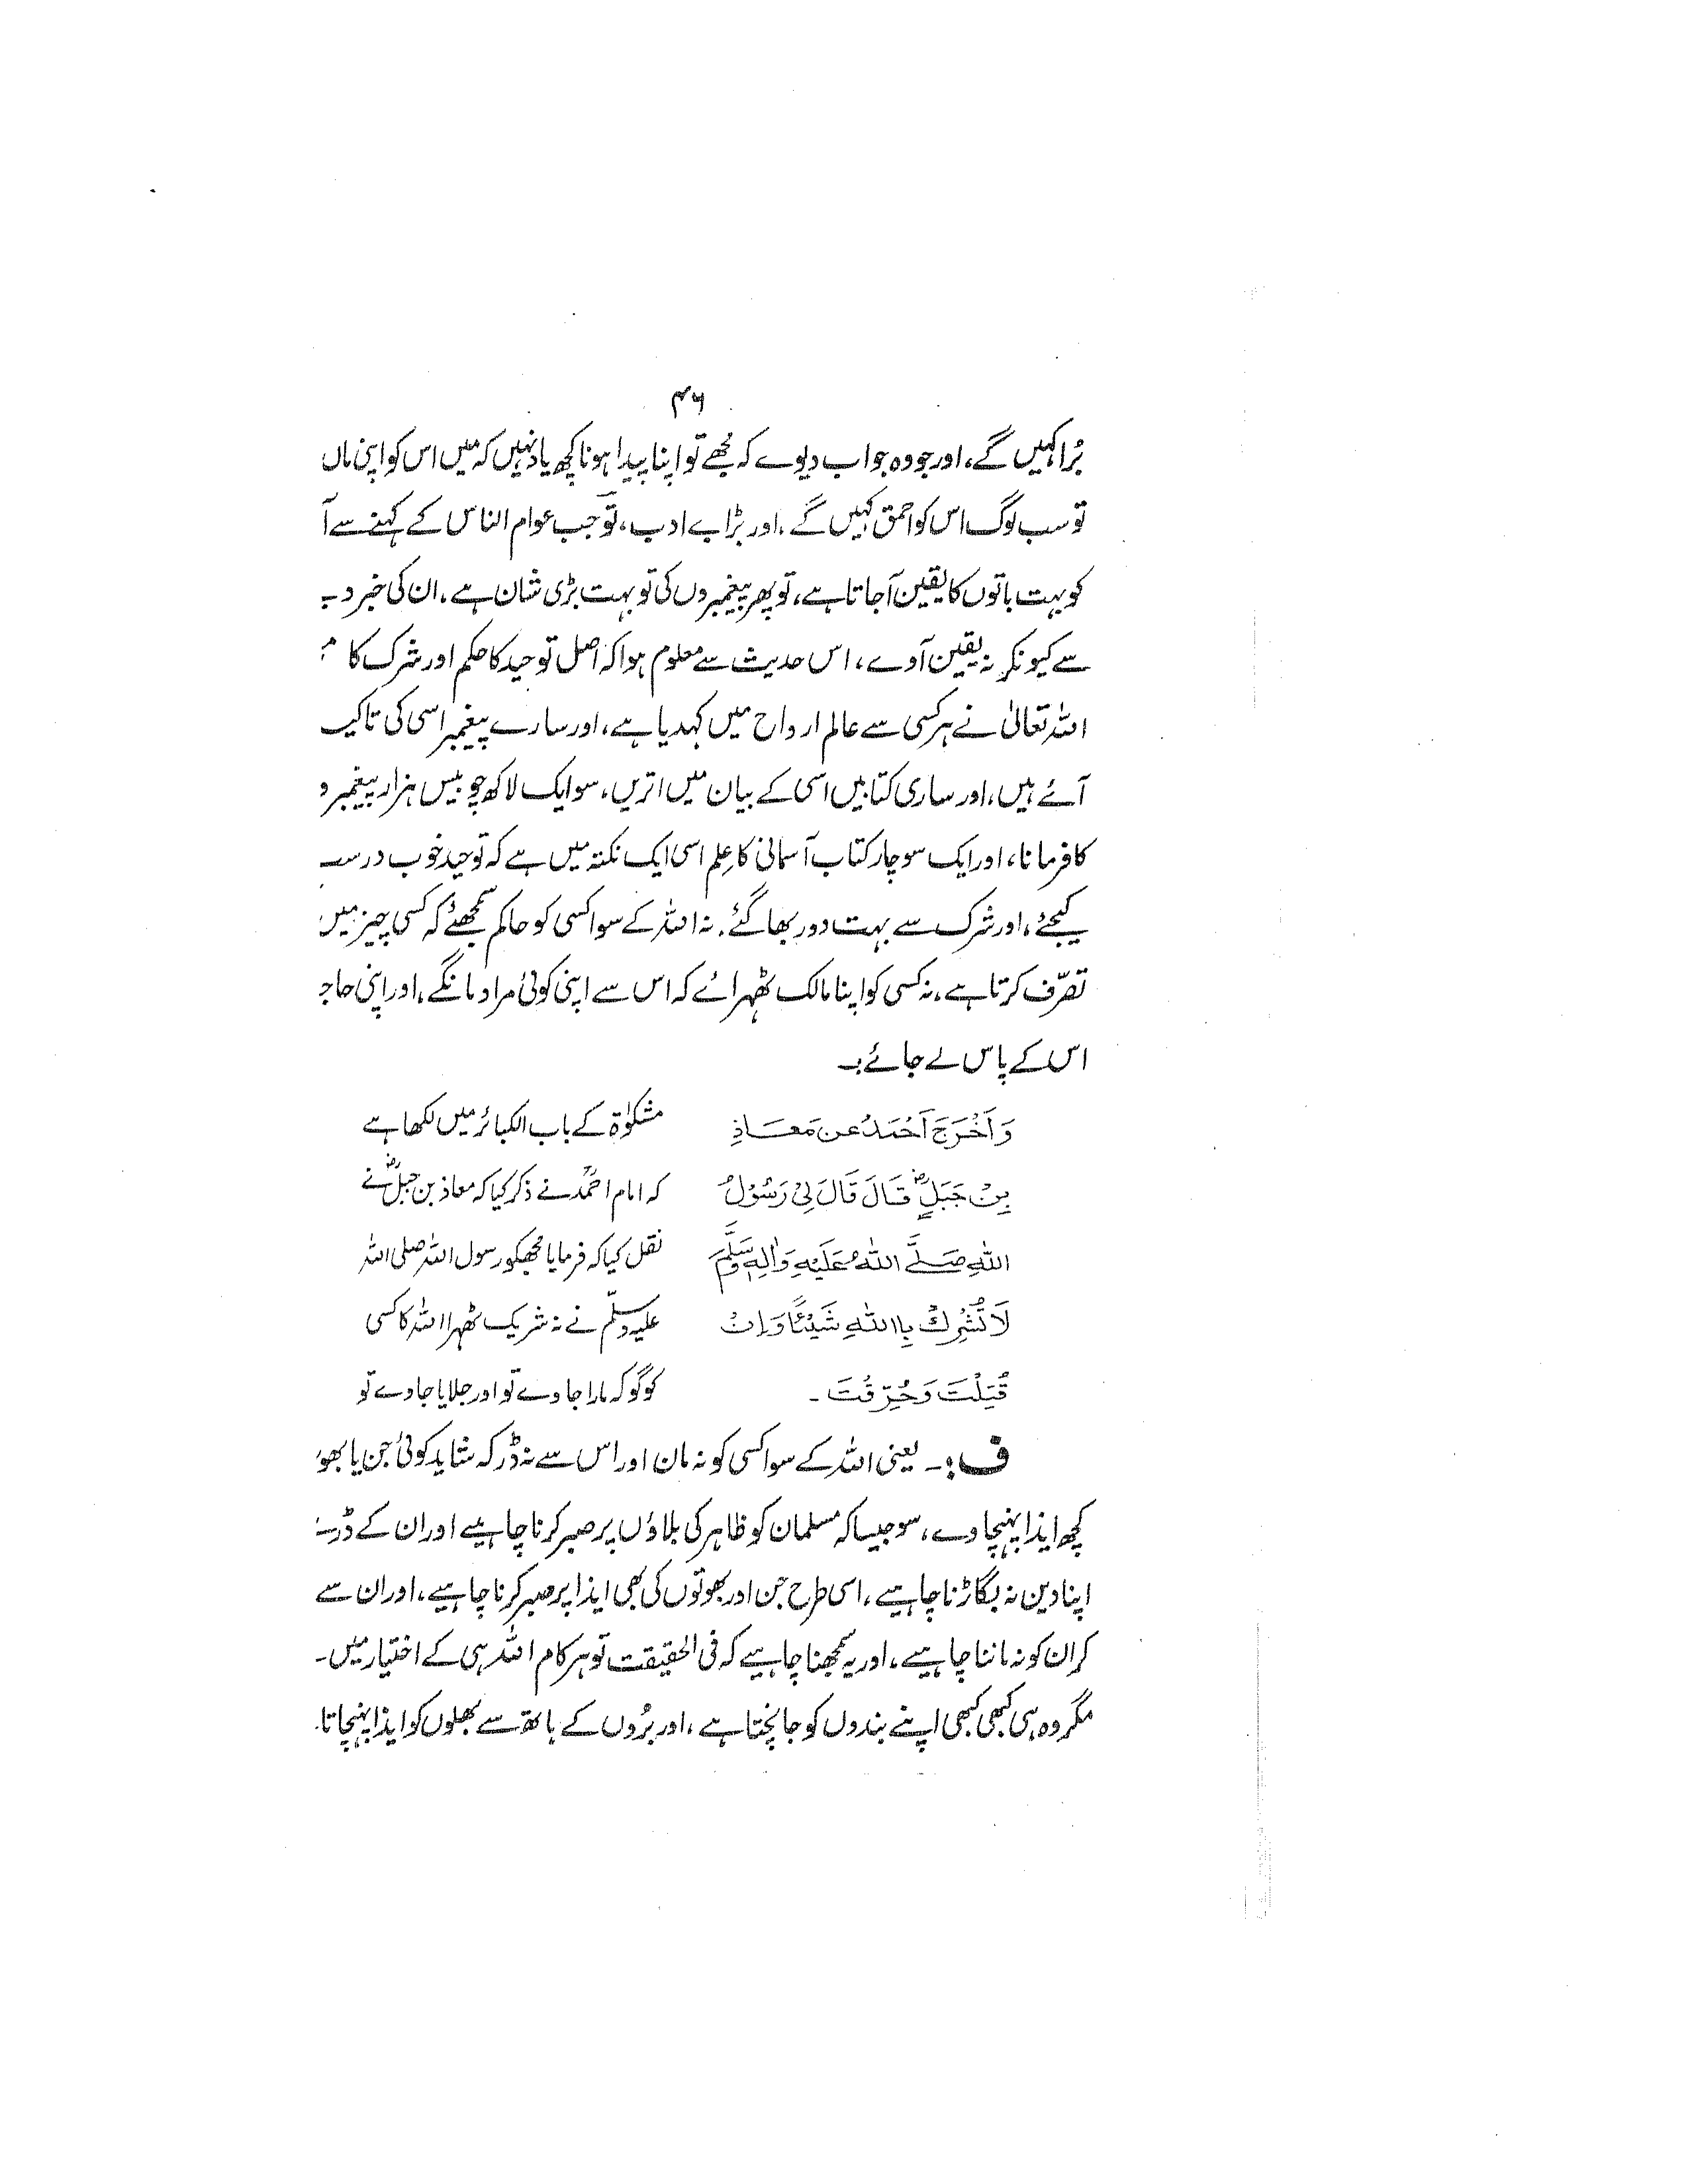 ۴۶
بُرا کہیں گے، اور جو وہ جواب دیوے کہ مجھے تو اپنا پیدا ہونا کچھ یاد نہیں کہ میں اس کو اپنی ماں
تو سب لوگ اس کو احمق کہیں گے، اور بڑا بے ادب، تو جب عوام الناس کے کہنے سے آ
کو بہت باتوں کا یقین آجاتا ہے، تو پھر پیغمبروں کی تو بہت بڑی شان ہے، ان کی خبر د
سے کیونکر نہ یقین آوے، اس حدیث سے معلوم ہوا کہ اصل توحید کا حکم اور شرک کا
اللہ تعالیٰ نے ہر کسی سے عالم ارواح میں کہدیا ہے، اور سارے پیغمبر اسی کی تاکیـ
آئے ہیں، اور ساری کتابیں اسی کے بیان میں اتریں، سو ایک لاکھ چوبیس ہزار پیغمبرو
کا فرمانا، اور ایک سو چار کتاب آسمانی کا عِلم اسی ایک نکتہ میں ہے کہ توحید خوب درسـ
کیجئے، اور شرک سے بہت دور بھاگئے. نہ اللہ کے سوا کسی کو حاکم سمجھئے کہ کسی چیز میں
تصرّف کرتا ہے، نہ کسی کو اپنا مالک ٹھہرائے کہ اس سے اپنی کوئی مراد مانگے، اور اپنی حاجـ
اس کے پاس لے جائے۔
وَاَخْرَجَ اَحْمَدُ عَن مَعَاذِ
مشکوٰۃ کے باب الکبائر میں لکھا ہے
بِنْ جَبَلٍؓ قَالَ قَالَ لِیْ رَسُوْلُ
کہ امام احمدؒ نے ذکر کیا کہ معاذ بن جبلؓ نے
اللّٰهِ صَلَّے اللّٰهُ عَلَيْهِ وَاٰلِهٖ وَسَلَّمَ
نقل کیا کہ فرمایا مجھکو رسول اللہ صلی اللہ
لَا تُشْرِكْ بِااللّٰهِ شَيْئًا وَاِنْ
علیہ وسلّم نے نہ شریک ٹھہرا اللہ کا کسی
قُتِلْتَ وَحُرِّقْتَ ۔
کو گو کہ مارا جاوے تو اور جلایا جاوے تو
ف :۔ یعنی اللہ کے سوا کسی کو نہ مان اور اس سے نہ ڈر کہ شاید کوئی جن یا بھو
کچھ ایذا پہنچاوے، سو جیسا کہ مسلمان کو ظاہر کی بلاؤں پر صبر کرنا چاہیے اور ان کے ڈر
اپنا دین نہ بگاڑنا چاہیے، اسی طرح جن اور بھوتوں کی بھی ایذا پر صبر کرنا چاہیے، اور ان سے
کر ان کو نہ ماننا چاہیے، اور یہ سمجھنا چاہیے کہ فی الحقیقت تو ہر کام اللہ ہی کے اختیار میں
مگر وہ ہی کبھی کبھی اپنے بندوں کو جانچتا ہے، اور بُروں کے ہاتھ سے بھلوں کو ایذا پہنچاتا